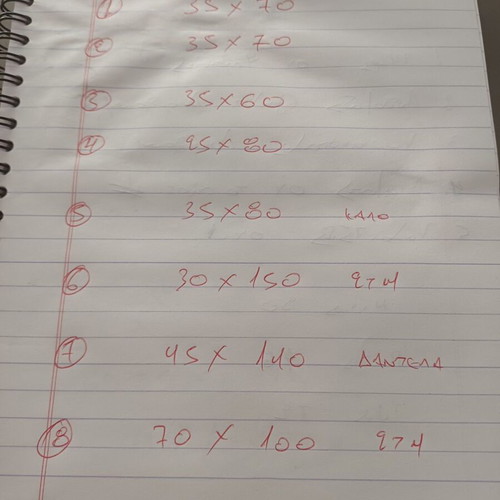 1 35 x 70
2 35 x 70
3 35 x 60
4 45 x 80
5 35 x 80 ΚΑΛΟ
6 30 x 150
7 45 x 140 ΔΑΝΤΕΛΑ
8 70 x 100